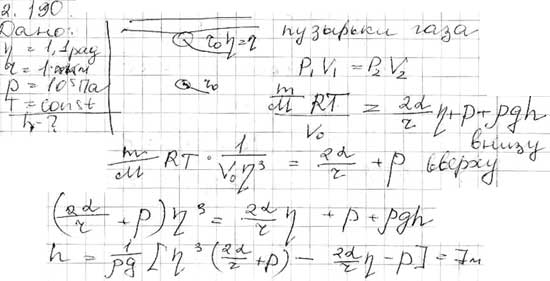 2.190.
Дано:
η = 1,1 раз
r = 1 мкм
p = 10⁵ Па
T = const
h - ?
r₀η = r
r₀
пузырьки газа
P₁V₁ = P₂V₂
m/M RT / V₀ = 2α/r η + p + ρgh
внизу
m/M RT · 1/(V₀η³) = 2α/r + p вверху
(2α/r + p) η³ = 2α/r η + p + ρgh
h = 1/ρg [η³(2α/r + p) - 2α/r η - p] = 7м